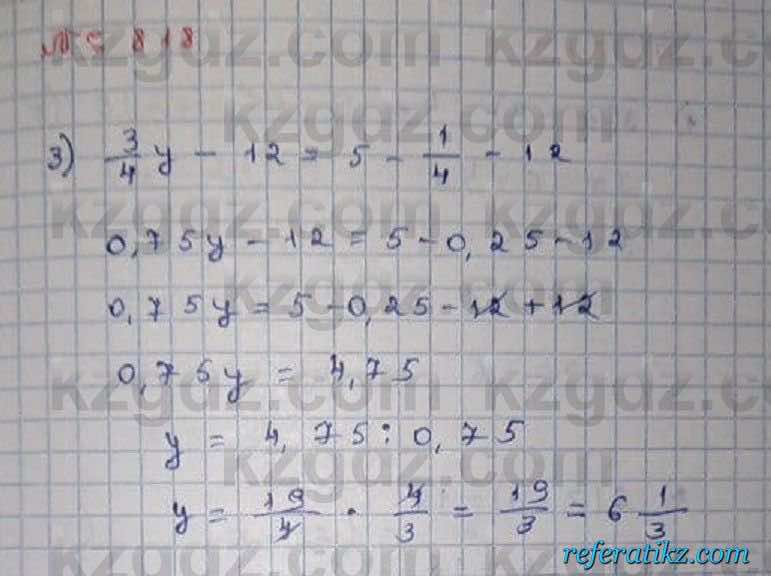 № 818
3) 3/4 y - 12 = 5 - 1/4 - 12
0,75y - 12 = 5 - 0,25 - 12
0,75y = 5 - 0,25 - 12 + 12
0,75y = 4,75
y = 4,75 : 0,75
y = 19/4 · 4/3 = 19/3 = 6 1/3
kzgdz.com
referatikz.com